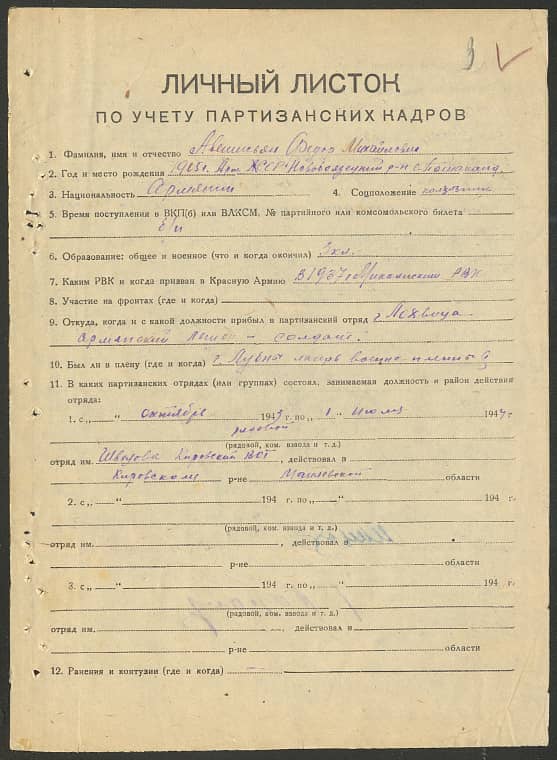 3
ЛИЧНЫЙ ЛИСТОК
ПО УЧЕТУ ПАРТИЗАНСКИХ КАДРОВ
1. Фамилия, имя и отчество Аветисьян Михайлович
2. Год и место рождения 1905 г. Арм. ССР р-н с.
3. Национальность Армянин 4. Соцположение колхозник
5. Время поступления в ВКП(б) или ВЛКСМ, № партийного или комсомольского билета
б/п
6. Образование: общее и военное (что и когда окончил) 3 кл.
7. Каким РВК и когда призван в Красную Армию В 1937 г. Микоянским РВК
8. Участие на фронтах (где и когда)
9. Откуда, когда и с какой должности прибыл в партизанский отряд г. Лохвица
Армянский Легион – солдат.
10. Был ли в плену (где и когда) г. Лубны лагерь
11. В каких партизанских отрядах (или группах) состоял, занимаемая должность и район действия
отряда:
1. с „ “ октября 1943 г. по „ 1 “ июля 1944 г.
рядовой
(рядовой, ком. взвода и т. д.)
отряд им. Кировский , действовал в
Кировском р-не Могилевской области
2. с „ “ 194 г. по „ “ 194 г.
(рядовой, ком. взвода и т. д.)
отряд им. , действовал в
р-не области
3. с „ “ 194 г. по „ “ 194 г.
(рядовой, ком. взвода и т. д.)
отряд им. , действовал в
р-не области
12. Ранения и контузии (где и когда)